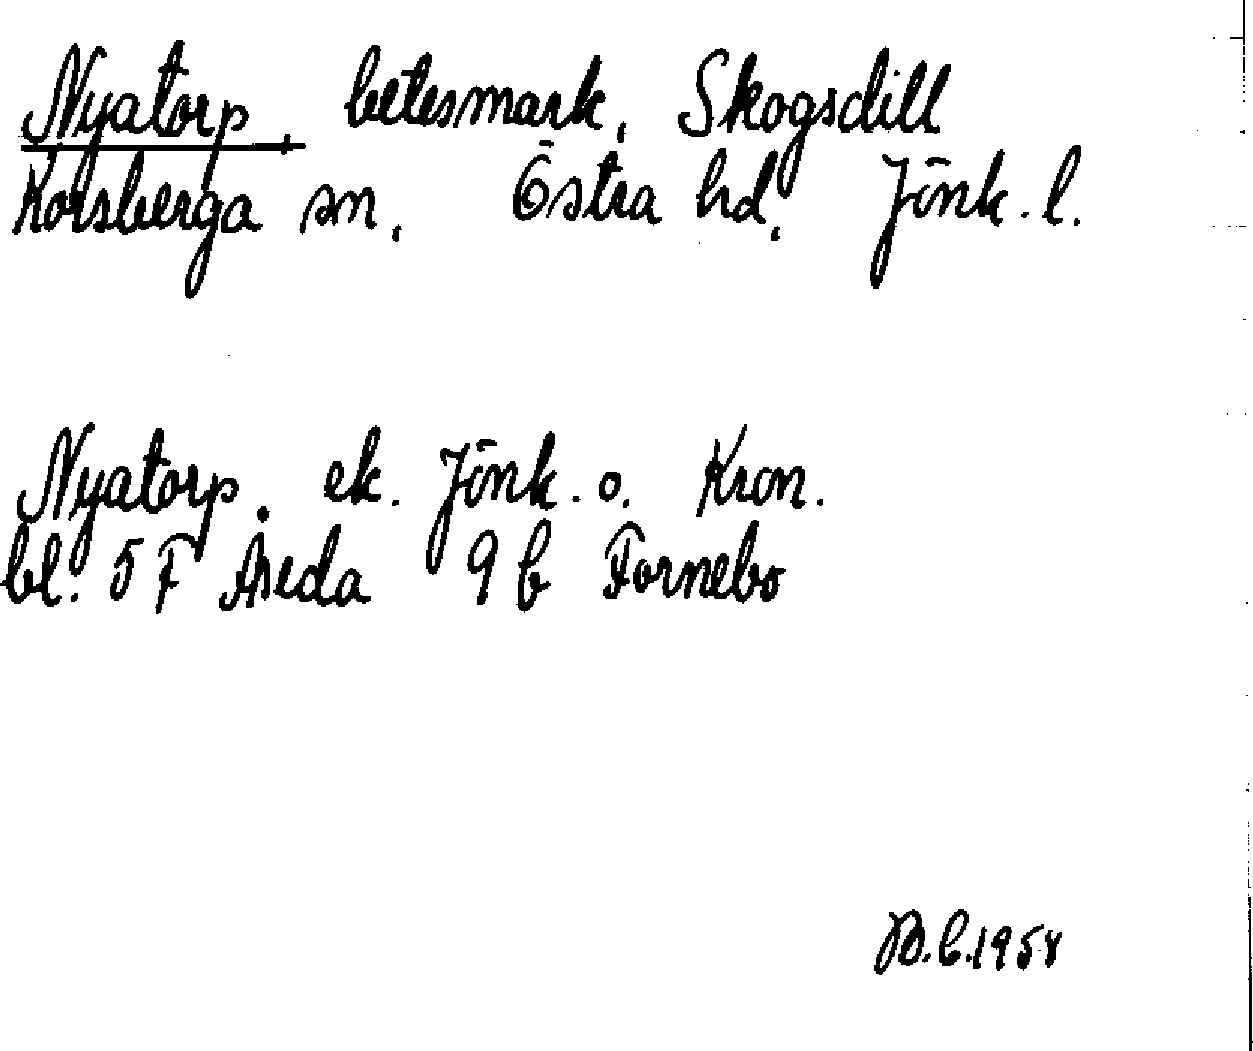 Nyatorp, betesmark, Skogsdill
Korsberga sn, Östra hd, Jönk. l.
Nyatorp. ek. Jönk. o. Kron.
bl. 5 F Åseda 9 b Fornebo
1958